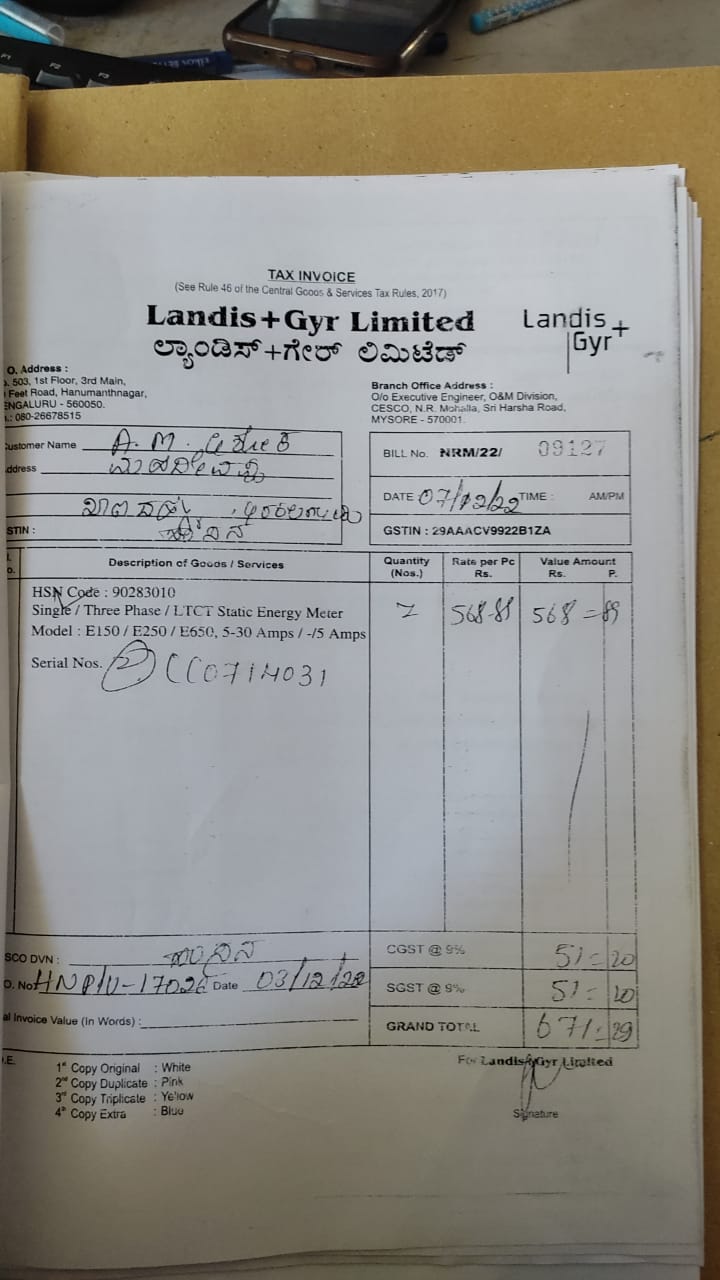 F1
F2
F3
TAX INVOICE
(See Rule 46 of the Central Goods & Services Tax Rules, 2017)
Landis+Gyr Limited
ಲ್ಯಾಂಡಿಸ್+ಗೇರ್ ಲಿಮಿಟೆಡ್
Landis+
Gyr
O. Address :
503, 1st Floor, 3rd Main,
Feet Road, Hanumanthnagar,
ENGALURU - 560050.
.: 080-26678515
Branch Office Address :
O/o Executive Engineer, O&M Division,
CESCO, N.R. Mohalla, Sri Harsha Road,
MYSORE - 570001.
ustomer Name A.M.
ddress
STIN :
BILL No. NRM/22/ 09127
DATE 07/12/22 TIME : AM/PM
GSTIN : 29AAACV9922B1ZA
Description of Goods / Services
Quantity (Nos.)
Rate per Pc Rs.
Value Amount Rs. P.
HSN Code : 90283010
Single / Three Phase / LTCT Static Energy Meter
Model : E150 / E250 / E650, 5-30 Amps / -/5 Amps
568=89
Serial Nos. CC0714031
SCO DVN :
O. No Date 03/12/22
al Invoice Value (In Words) :
CGST @ 9% 51=20
SGST @ 9% 51=20
GRAND TOTAL 671=29
.E.
1st Copy Original : White
2nd Copy Duplicate : Pink
3rd Copy Triplicate : Yellow
4th Copy Extra : Blue
For Landis+Gyr Limited
Signature